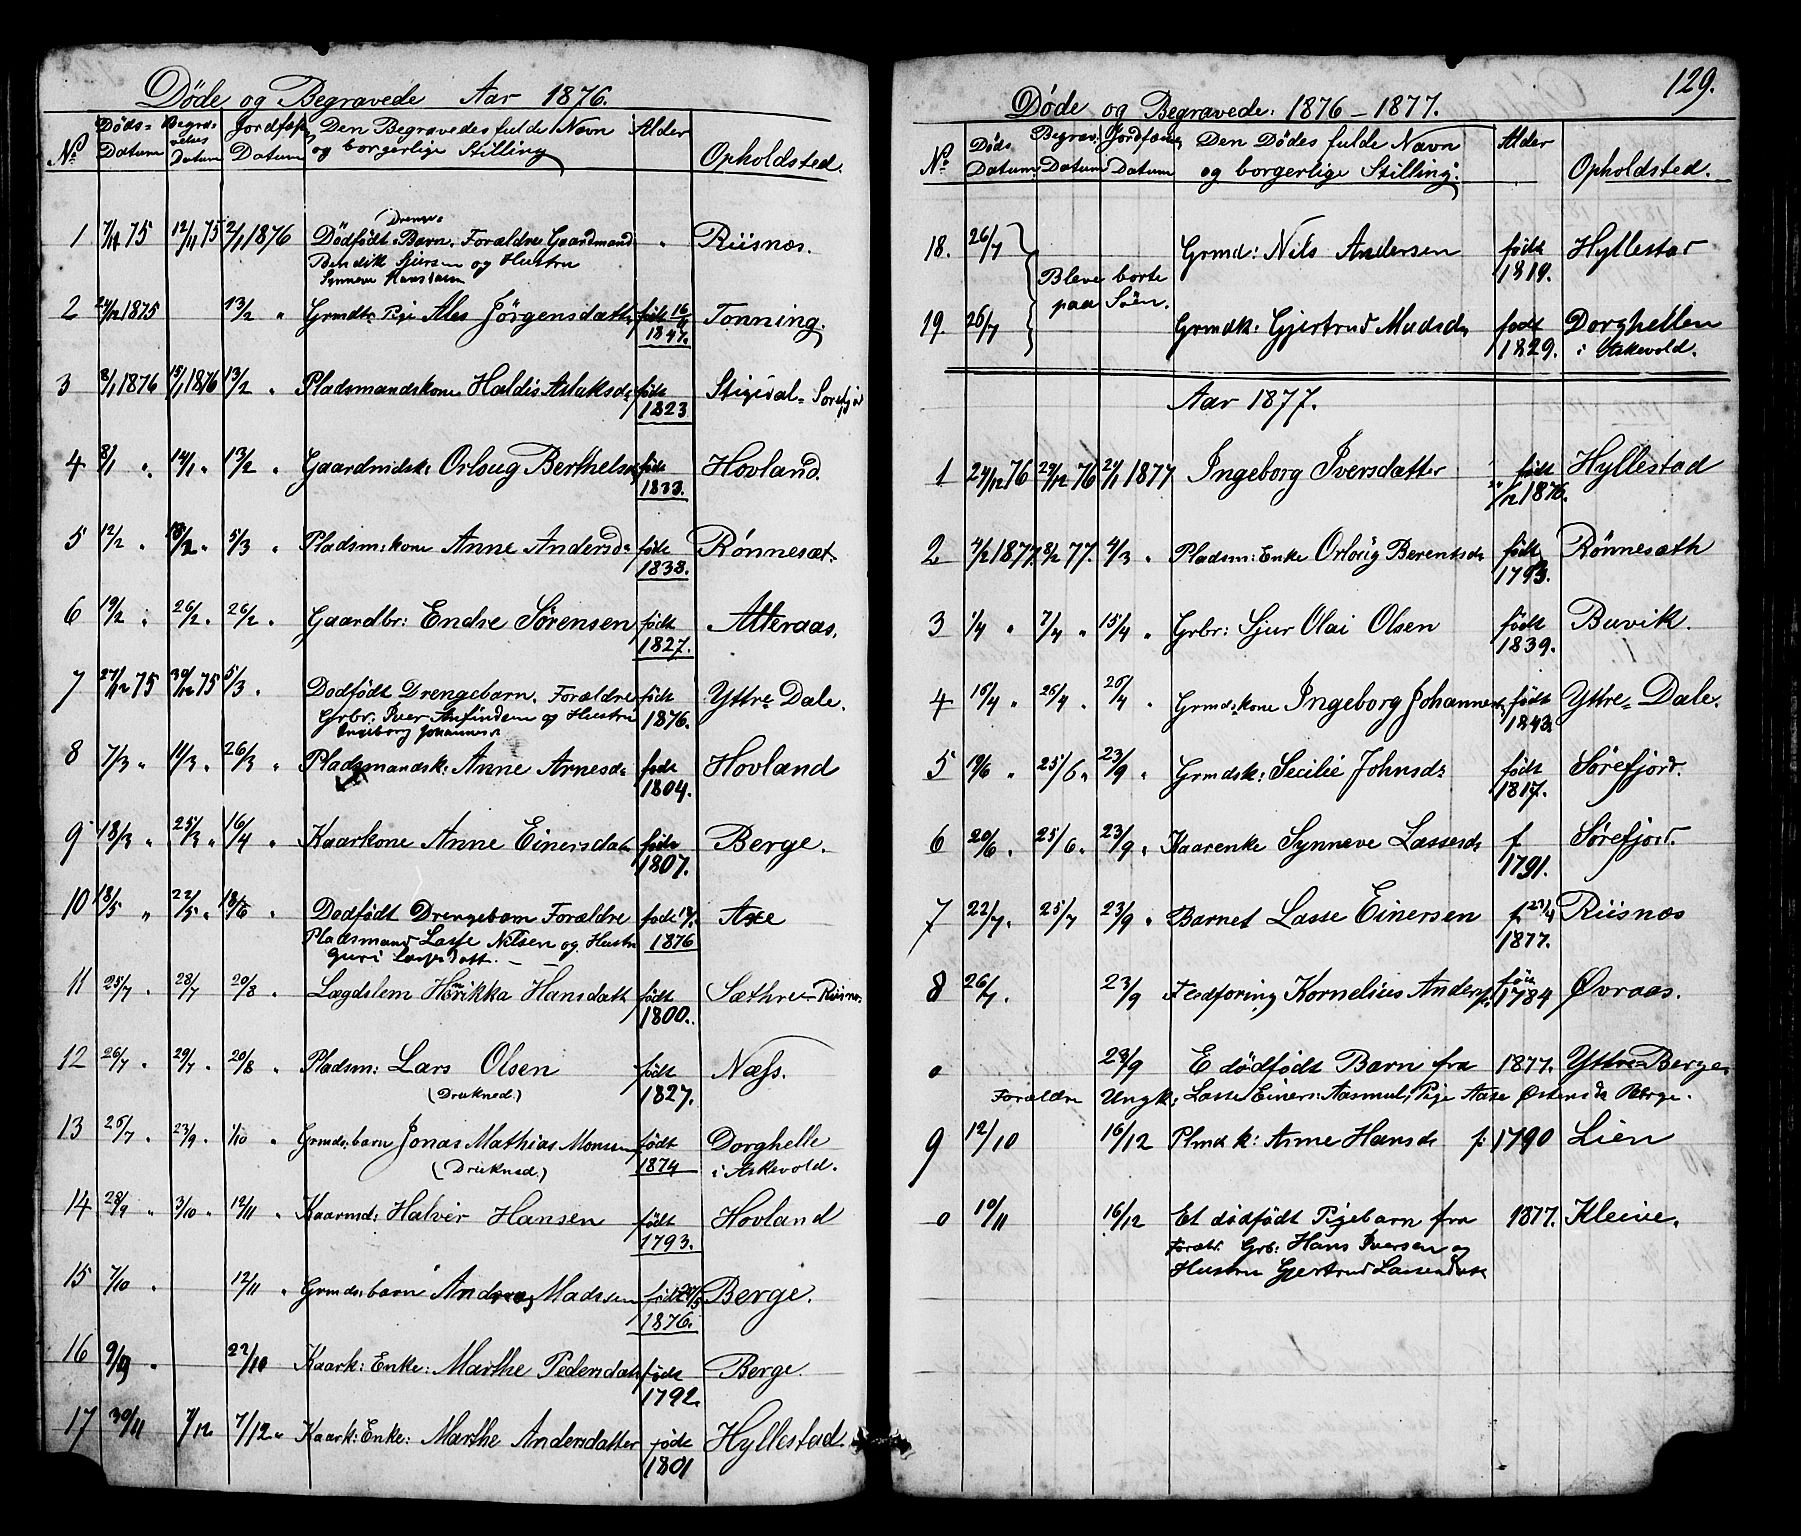 Døde og Begravede Aar 1876.
No Døds-Datum Begravelses Datum Jordfæst Datum Den Begravedes fulde Navn og borgerlige Stilling Alder Opholdsted.
1 7/11 75 12/11 75 2/1 1876 Dødfødt Drenge-Barn, Forældre Gaardmand " Riisnæs.
Bendik Sjursen og Hustru
Synneve Hansdatter
2 24/12 1875 13/2 " Grmdts Pige Ales Jørgensdatter født 16/ 1847. Tonning.
3 8/1 1876 15/1 1876 13/2 " Pladsmandskone Haldis Aslaksd: født 1823 Stigedal - Sørefjord
4 8/1 " 14/1 " 13/2 " Gaardmdsk: Orloug Berthelsd født 1833. Hovland.
5 12/2 " 18/2 " 5/3 " Pladsm: kone Anne Andersd: født 1838. Rønnesæt.
6 19/2 " 26/2 " 26/2 " Gaardbr: Endre Sørensen født 1827. Atteraas.
7 27/12 75 30/12 75 5/3 " Dødfødt Drengebarn. Forældre født 1876. Yttre Dale.
Grbr. Iver Anfindsen og Hustru
Ingeborg Johannesd
8 7/3 " 11/3 " 26/3 " Pladsmandsk: Anne Arnesd: født 1804. Hovland
9 18/3 " 25/3 " 16/4 " Kaarkone Anne Einersdat født 1807. Berge.
10 18/5 " 22/5 " 18/6 " Dødfødt Drengebarn Forældre føde 18/5 1876 Axe
Pladsmand Lasse Nilsen og Hustru
Guri Lassesdatt.
11 25/7 " 28/7 20/8 " Lægdslem Henrikka Hansdatt født 1800. Sæthre Riisnæs.
12 26/7 " 29/7 " 20/8 " Pladsm: Lars Olsen født 1827. Næss.
(Drukned.)
13 26/7 " 23/9 " 1/10 " Grmds: barn Jonas Mathias Monsen født 1874 Dorghelle i Askevold.
(Druknad.)
14 28/9 " 3/10 " 12/11 " Kaarmd: Halvor Hansen født 1793. Hovland
15 7/10 " 12/11 " Grmds: barn Andreas Madssen født 24/5 1876. Berge.
16 9/9 " 22/10 Kaark: Enke: Marthe Pedersdatt født 1792. Berge.
17 30/11 7/12 7/12 " Kaark: Enke: Marthe Andersdatter føde 1801 Hyllestad.
129.
Døde og Begravede: 1876 - 1877.
No. Døds Datum Begrav: Datum Jordfæst Datum Den Dødes fulde Navn og borgerlige Stilling. Alder Opholdsted.
18. 26/7 Bleve borte paa Søen. Grmd: Nils Andersen født 1819. Hyllestad
19. 26/7 Grmdk: Gjertrud Madsd født 1829. Dorghellen i Askevold.
Aar 1877.
1 24/12 76 29/12 76 21/1 1877. Ingeborg Iversdatter født /12 1876. Hyllestad
2 4/2 1877. 8/2 77. 4/3 " Pladsm: Enke Orloug Berentsd: født 1793. Rønnesæth
3 1/4 " 7/4 " 15/4 " Grbr: Sjur Olai Olsen født 1839. Buvik.
4 16/4 " 26/4 " 26/4 " Grmdskone Ingeborg Johannesd født 1843. Yttre Dale.
5 19/6 " 25/6 " 23/9 " Grmdsk: Secilie Johnsd: født 1817. Sørefjord.
6 20/6 " 25/6 " 23/9 " Kaarenke Synneve Lassesd: f 1791. Sørefjord.
7 22/7 " 25/7 23/9 " Barnet Lasse Einersen f. 23/4 1877. Riisnæs
8 26/7 " 23/9 Fledføring Kornelius Anders: født 1784 Øvraas.
0 23/9 E dødfødt Barn fra 1877. Yttre Berge
Forældre Ungk: Lasse Einers: Aasmul; Pige Aase Østensd: Berge.
9 12/10 16/12 Plmdk: Anne Hansd: f: 1790 Lien
0 10/11 16/12 Et dødfødt Pigebarn fra 1877. Kleive.
Foræld. Grb: Hans Iversen og
Hustru Gjertrud Lassesdatt